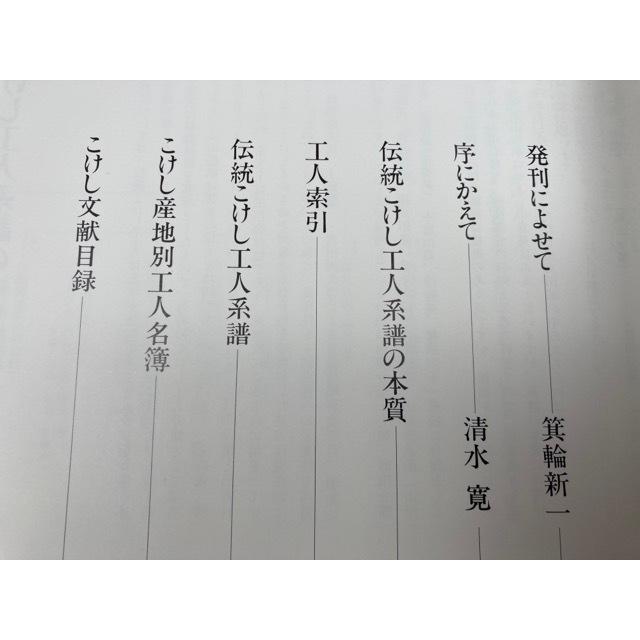 発刊によせて 箕輪新一
序にかえて 清水 寛
伝統こけし工人系譜の本質
工人索引
伝統こけし工人系譜
こけし産地別工人名簿
こけし文献目録